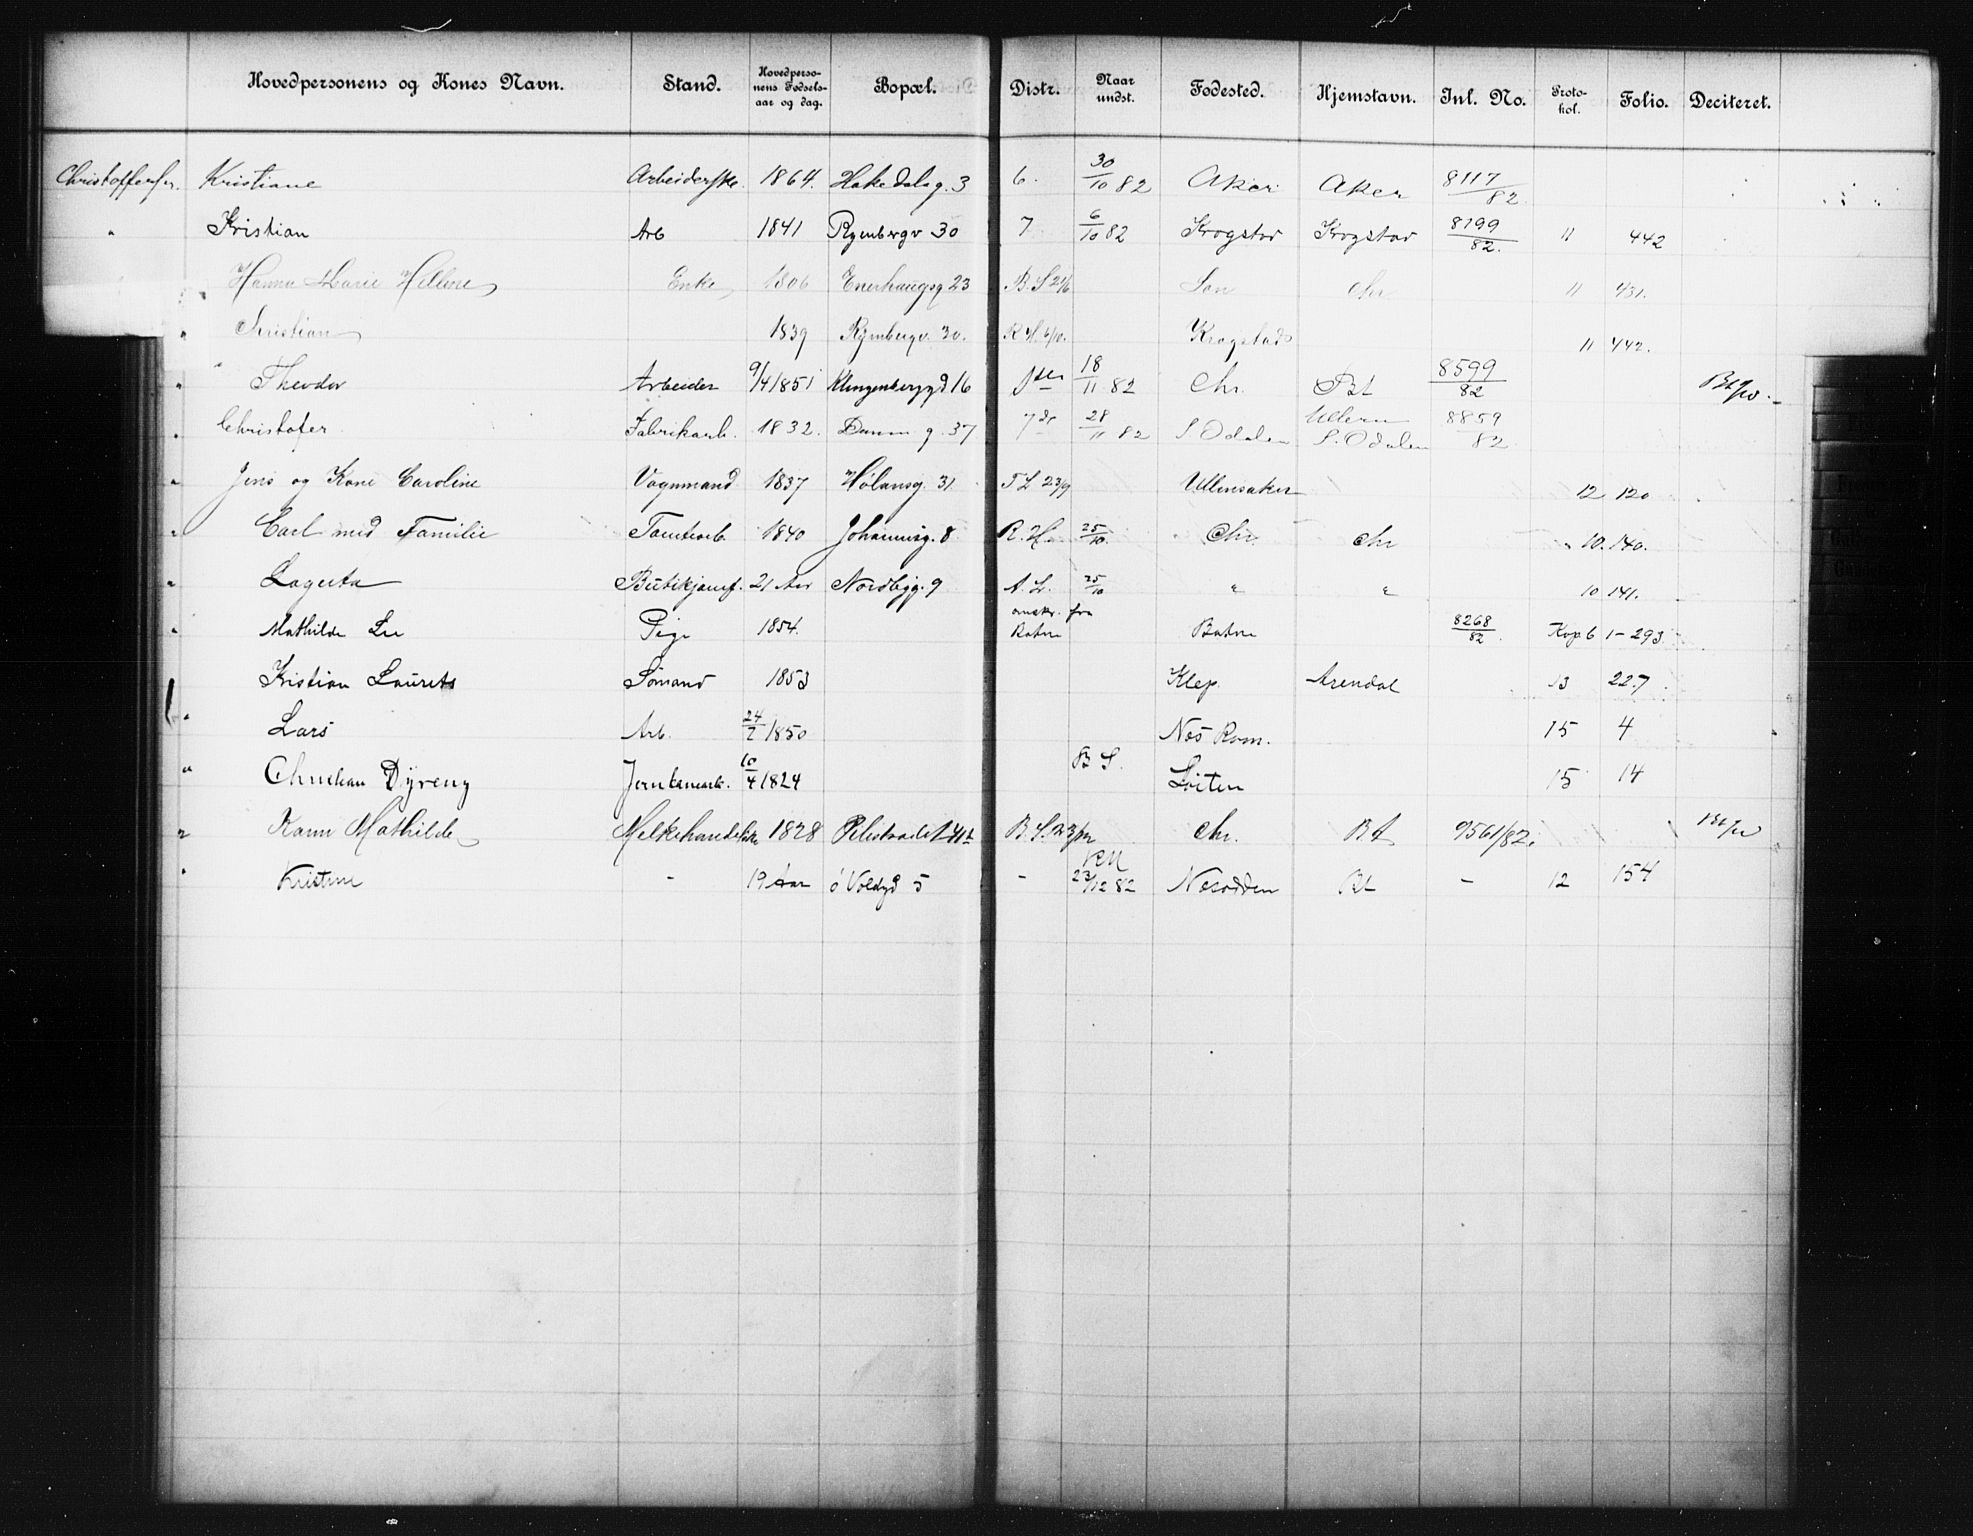 Hovedpersonens og Kones Navn. Stand. Hovedpersonens Fødselsaar og dag. Bopæl. Distr. Naar undst. Fødested. Hjemstavn. Inl. No. Protokol. Folio. Deciteret.
Christoffersen. Kristiane Arbeiderske. 1864. Hakedalsg. 3 6. 30/10 82 Aker Aker 8117/82
" Kristian Arb 1841 Ryenbergv 30 7 6/10 82 Krogstad Krogstad 8199/82. 11 442
Hanna Marie Enke 1806 Enerhaugsg 23 B.S 21/6 Son Chr 11 431.
" Christian 1839 Ryenbergv. 30. R H. 6/10. Krogstads 11 442.
" Theodor Arbeider 9/4 1851 Klingenberggd 16 18/11 82 Chr. Bt 8599/82
" Christofer Fabrikarb. 1832. g. 37 7de 28/11 82 S Odalen Ullern S. Odalen 8859/82
" Jens og Kone Caroline Vognmand 1837 Hølansg. 31 T L 23/9 Ullensaker 12 120
" Carl med Familie Tomtearb. 1840 Johannisg. 8 R. H. 25/10. Chr. Chr 10. 140.
" Lagerta Butikjomf. 21 Aar Nordbygg. 9 A. L. 25/10 " " 10 141.
" Mathilde Lee Pige 1854. omskr. fra Botne Botne 8268/82. Kop 6 1-293
Kristian Laurets Sømand 1853 Klep. Arendal 13 227
" Lars Arb. 24/7 1850 Nes Rom. 15 4
" Christian Dÿreng 10/4 1824 B S. Løiten 15 14
" Karen Mathilde Melkehandlerske 1828 Pilestrædet B. S. 23/12 Chr. Bt 9561/82.
" Kristine - 19 Aar ø Voldgd 5 - 23/12 82 Nesodden Bt - 12 154